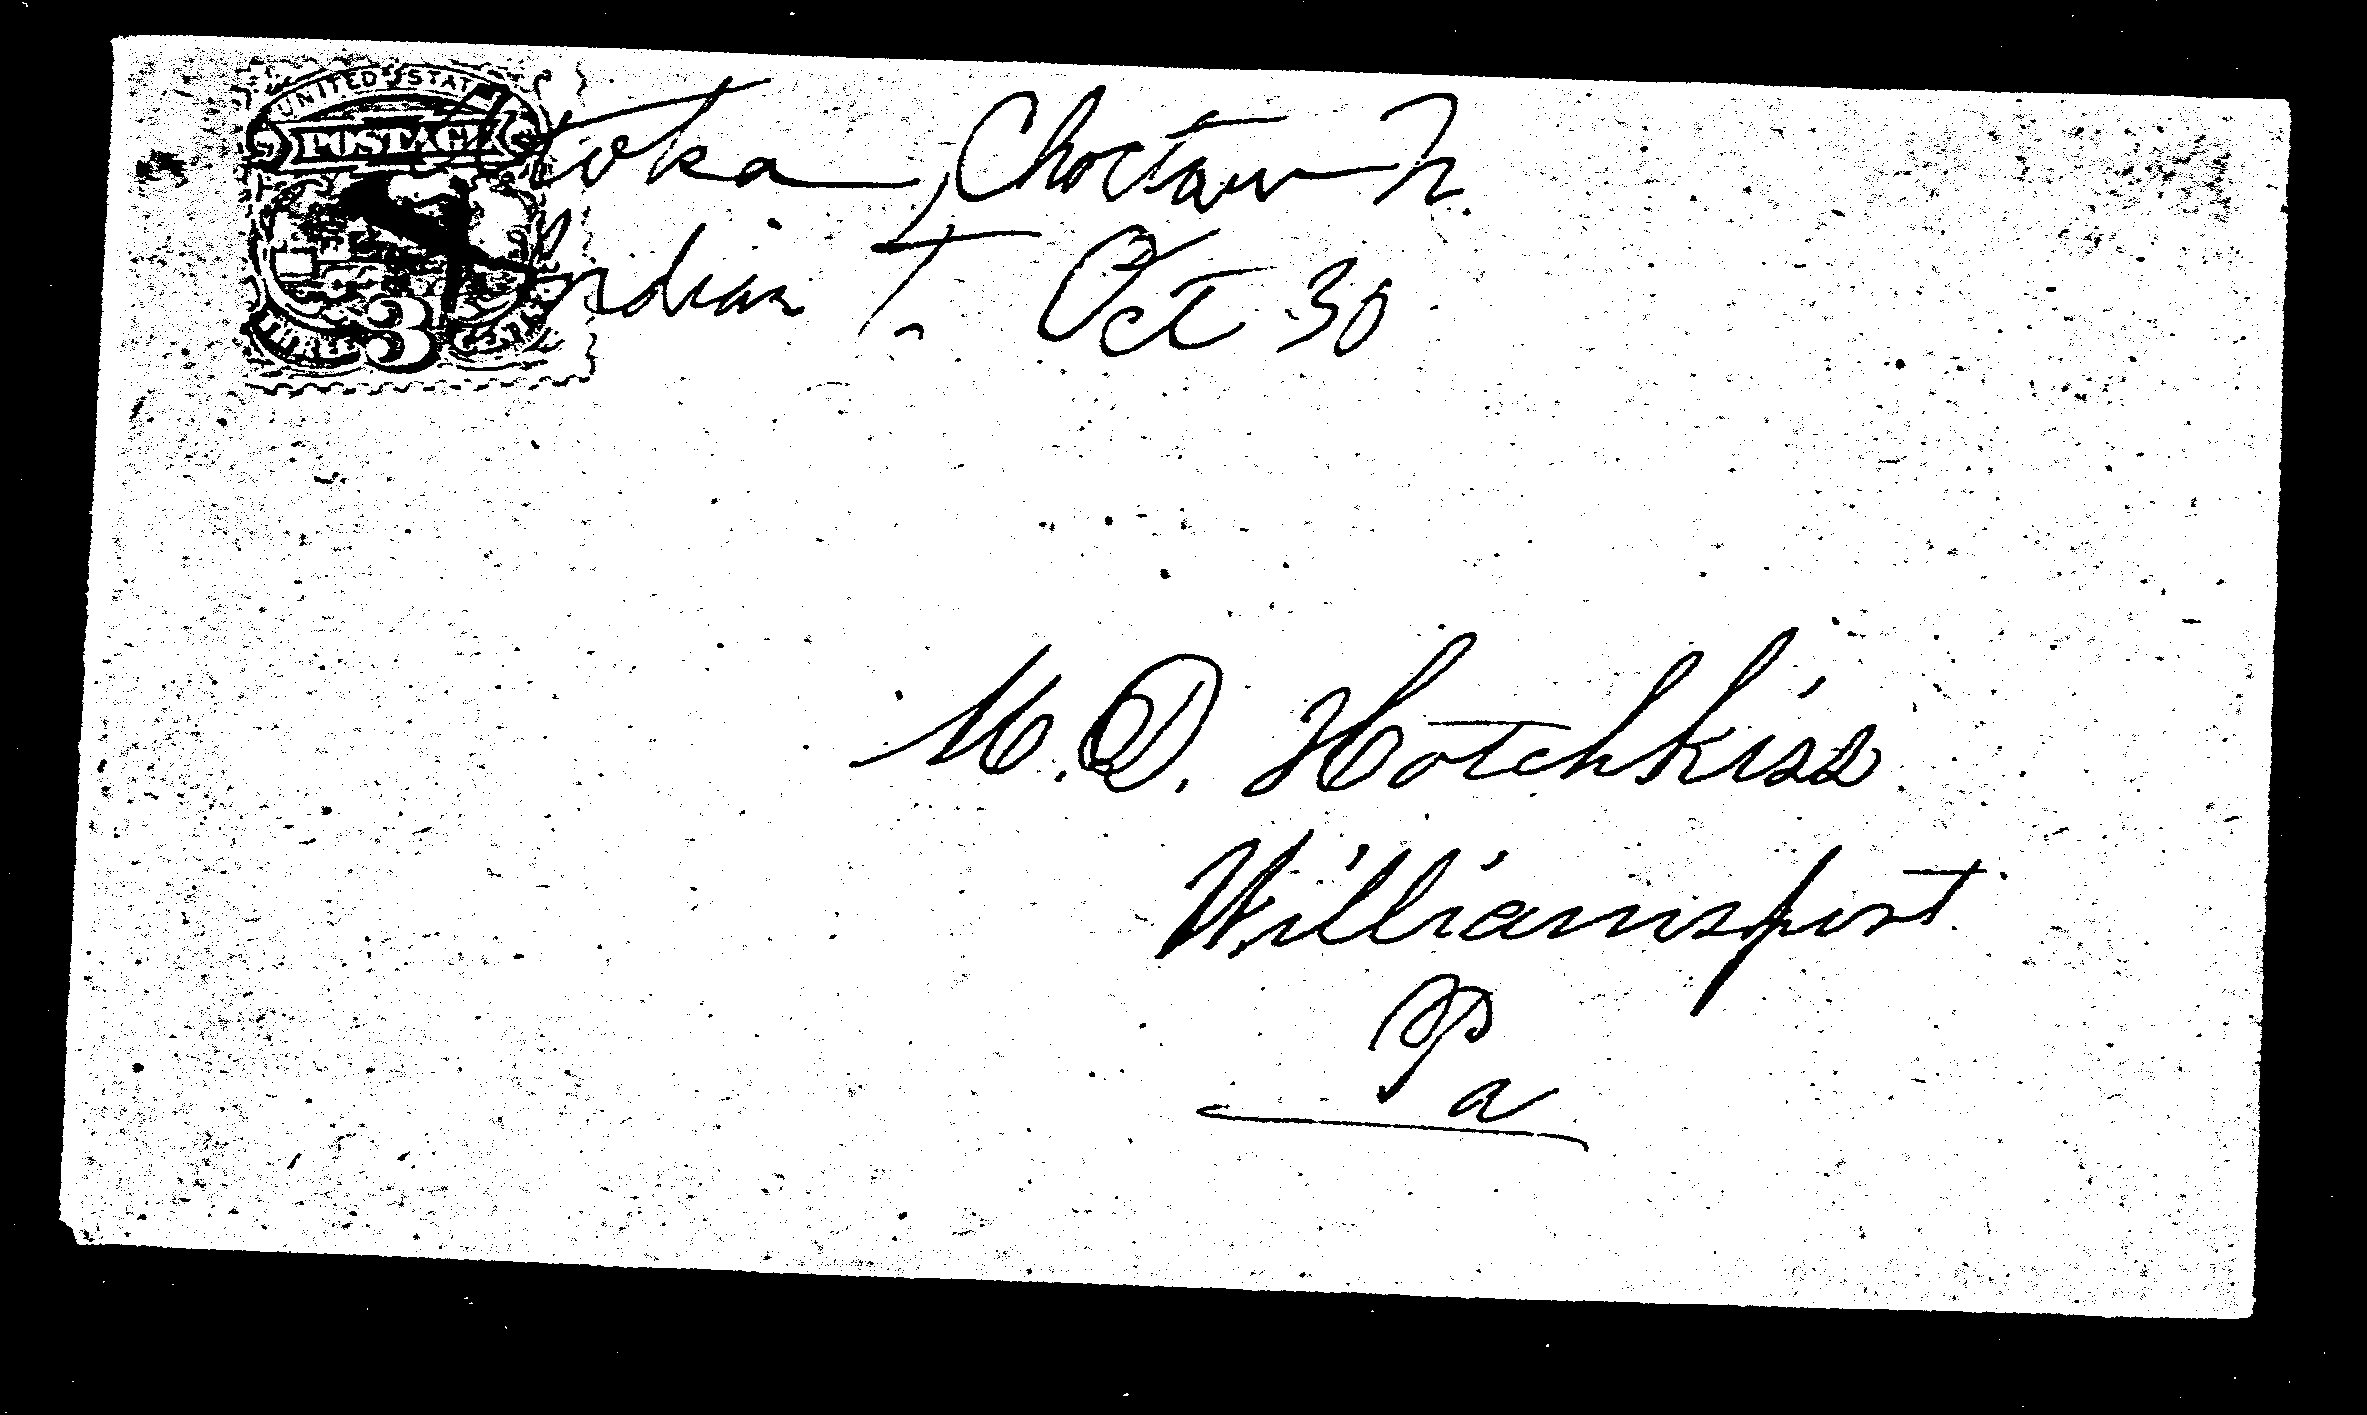 UNITED STATES
POSTAGE
THREE 3 CENTS
Atoka, Choctaw N.
Indian T. Oct 30
M.D. Hotchkiss
Williamsport
Pa